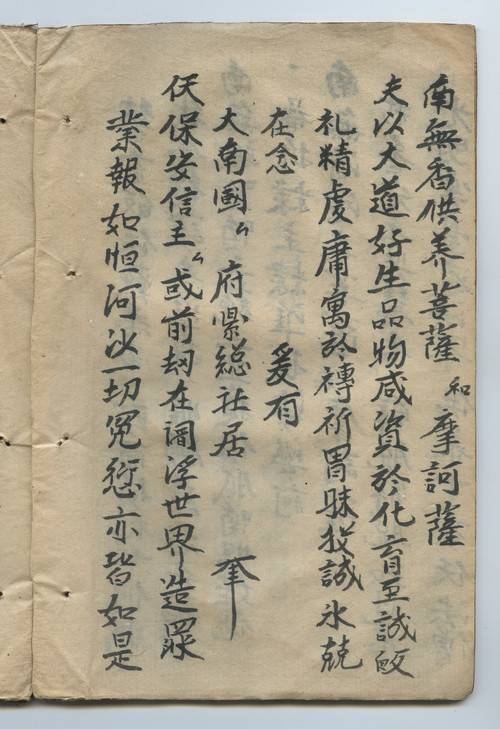 南無香供养菩薩 和 摩訶薩
夫以大道好生品物咸資於化育至誠
礼精虔庸寓於禱祈冒昧投誠氷兢
在念 爰有
大南國〻 府縣総社居 奉
伏保安信主〻或前劫在阎浮世界造罪
業報如恒河沙一切冤愆亦皆如是